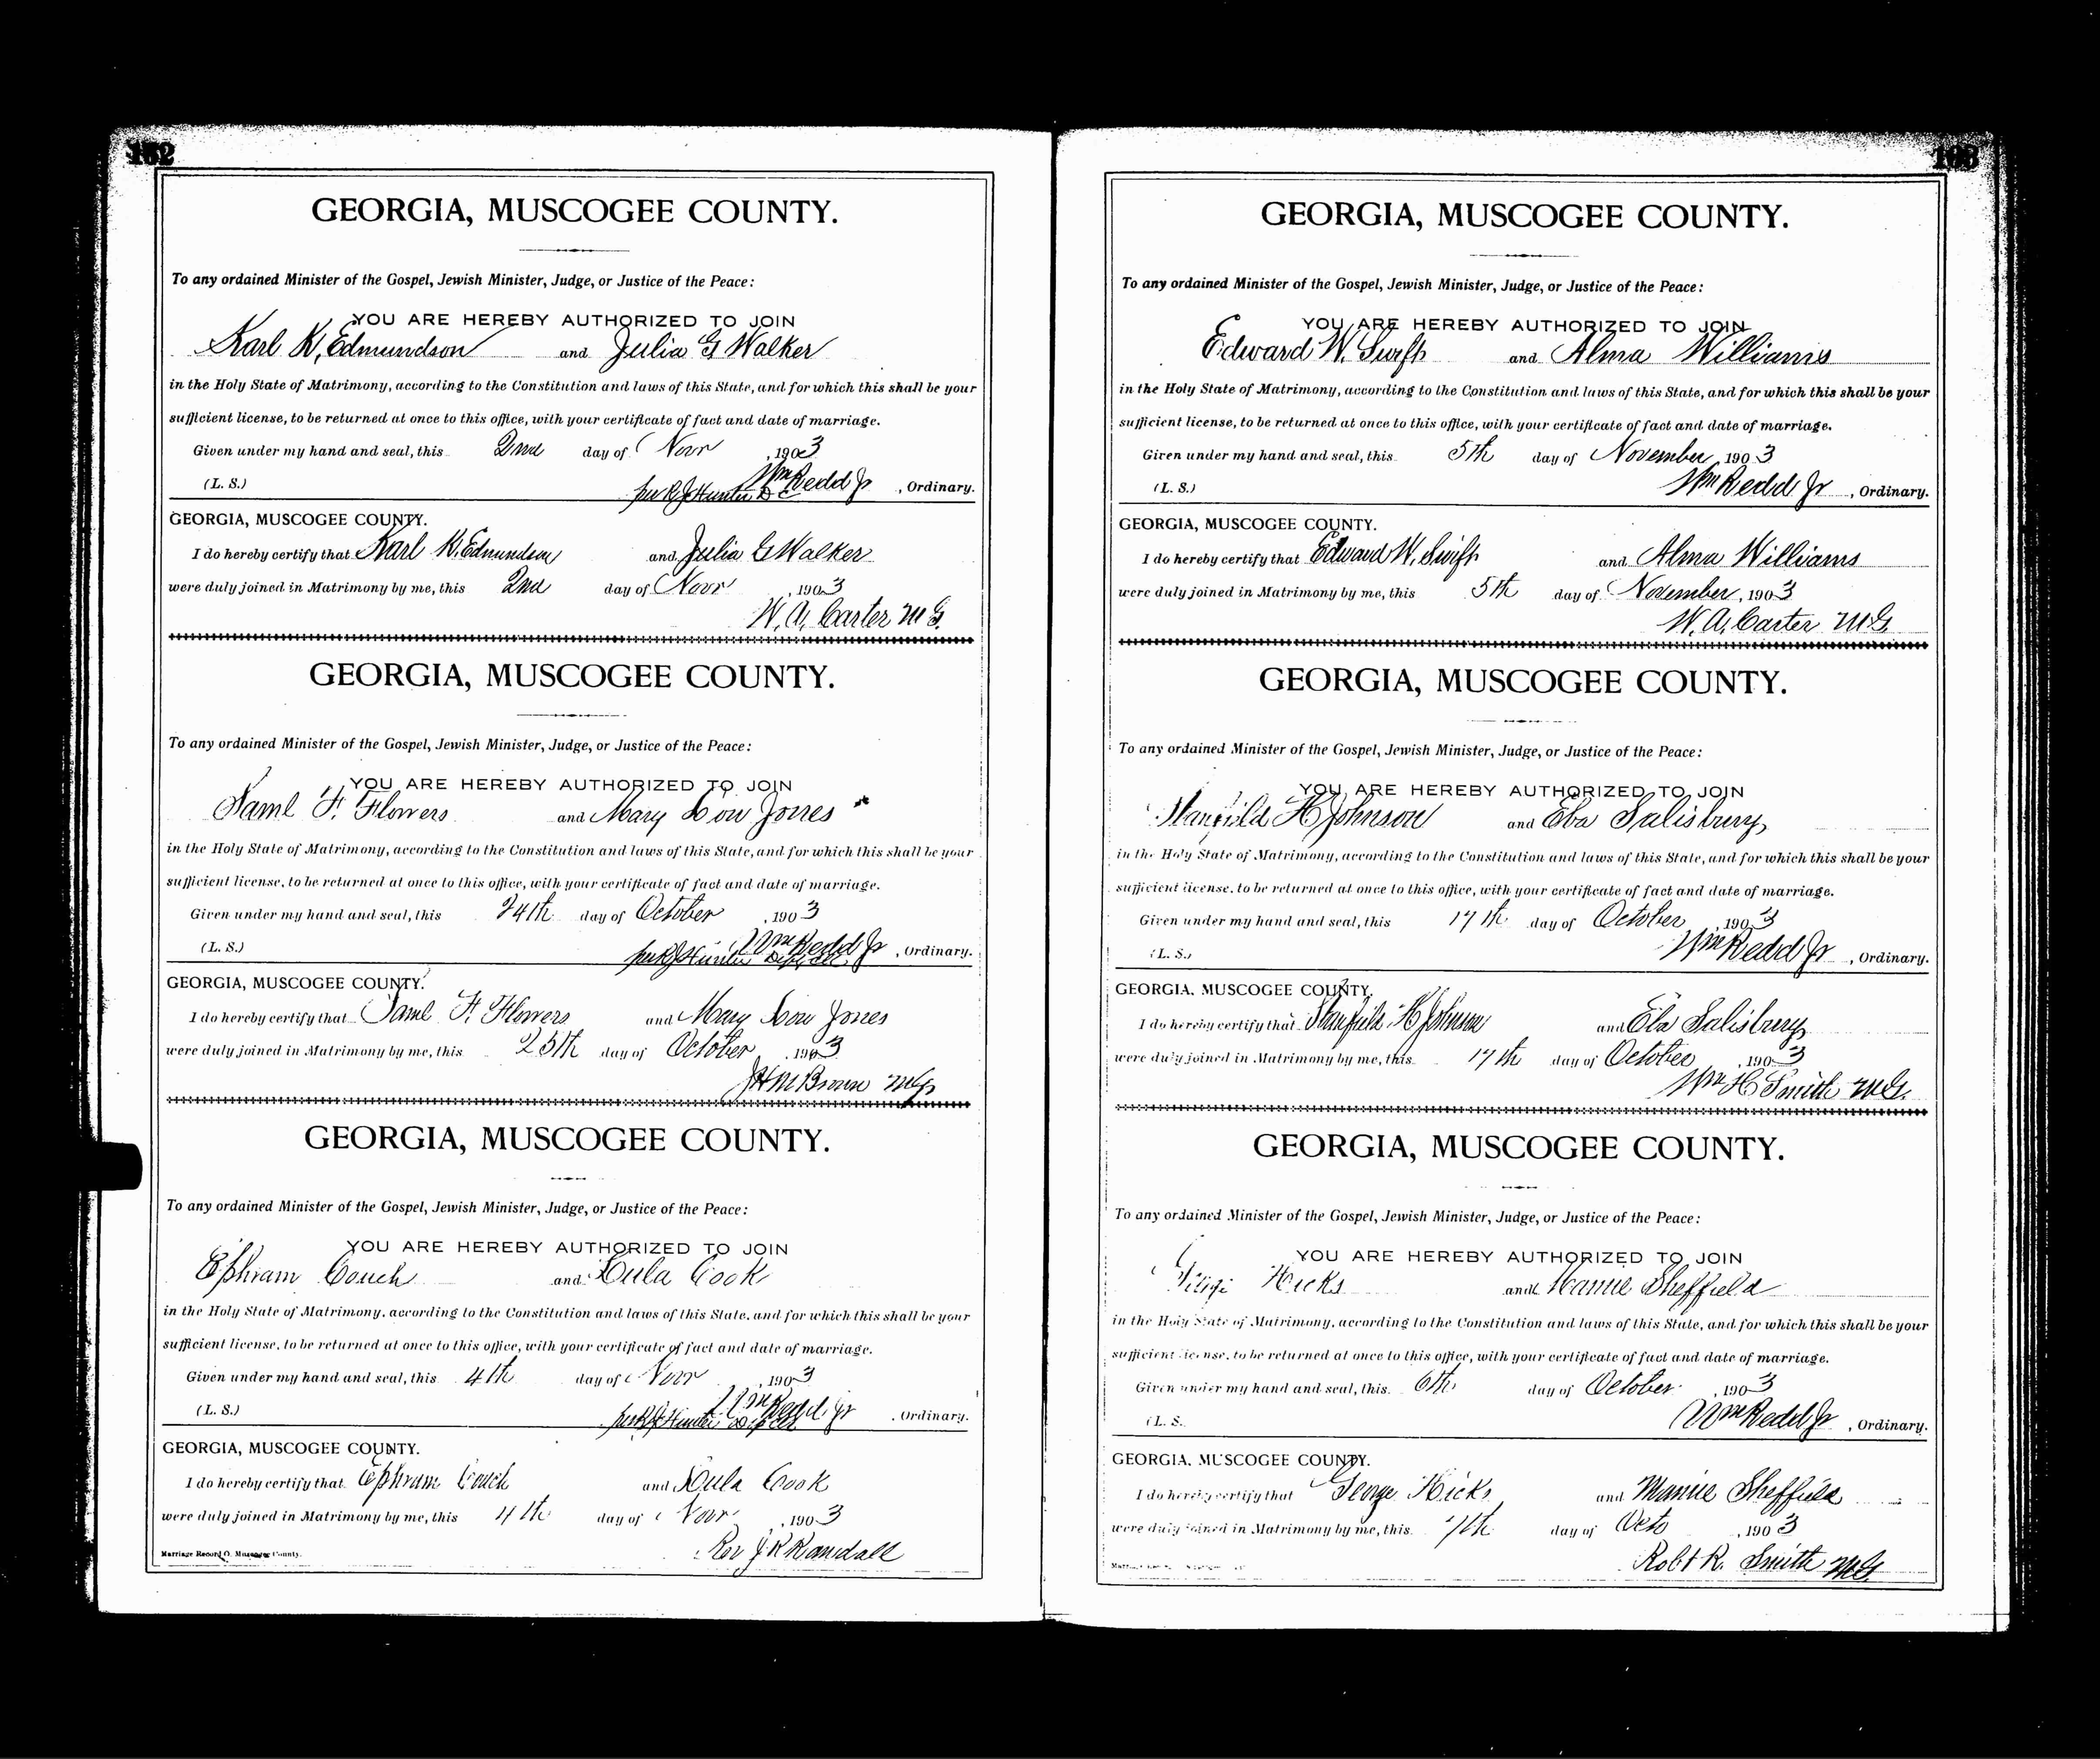 152
GEORGIA, MUSCOGEE COUNTY.
To any ordained Minister of the Gospel, Jewish Minister, Judge, or Justice of the Peace:
YOU ARE HEREBY AUTHORIZED TO JOIN
Karl K. Edmundson and Julia G Walker
in the Holy State of Matrimony, according to the Constitution and laws of this State, and for which this shall be your
sufficient license, to be returned at once to this office, with your certificate of fact and date of marriage.
Given under my hand and seal, this 2nd day of Novr , 1903
(L. S.) Wm Redd Jr , Ordinary.
per R J Hunter D C
GEORGIA, MUSCOGEE COUNTY.
I do hereby certify that Karl K. Edmundson and Julia G Walker
were duly joined in Matrimony by me, this 2nd day of Novr , 1903
W. A. Carter M G.
GEORGIA, MUSCOGEE COUNTY.
To any ordained Minister of the Gospel, Jewish Minister, Judge, or Justice of the Peace:
YOU ARE HEREBY AUTHORIZED TO JOIN
Saml F. Flowers and Mary Lou Jones
in the Holy State of Matrimony, according to the Constitution and laws of this State, and for which this shall be your
sufficient license, to be returned at once to this office, with your certificate of fact and date of marriage.
Given under my hand and seal, this 24th day of October , 1903
(L. S.) Wm Redd Jr , Ordinary.
per R J Hunter
GEORGIA, MUSCOGEE COUNTY.
I do hereby certify that Saml F. Flowers and Mary Lou Jones
were duly joined in Matrimony by me, this 25th day of October , 1903
J H M Brown MG
GEORGIA, MUSCOGEE COUNTY.
To any ordained Minister of the Gospel, Jewish Minister, Judge, or Justice of the Peace:
YOU ARE HEREBY AUTHORIZED TO JOIN
Ephram Couch and Lula Cook
in the Holy State of Matrimony, according to the Constitution and laws of this State, and for which this shall be your
sufficient license, to be returned at once to this office, with your certificate of fact and date of marriage.
Given under my hand and seal, this 4th day of Novr , 1903
(L. S.) Wm Redd Jr , Ordinary.
per R J Hunter
GEORGIA, MUSCOGEE COUNTY.
I do hereby certify that Ephram Couch and Lula Cook
were duly joined in Matrimony by me, this 4th day of Novr , 1903
Rev J R Randall
Marriage Record O, Muscogee County.
GEORGIA, MUSCOGEE COUNTY.
To any ordained Minister of the Gospel, Jewish Minister, Judge, or Justice of the Peace:
YOU ARE HEREBY AUTHORIZED TO JOIN
Edward W. Swift and Alma Williams
in the Holy State of Matrimony, according to the Constitution and laws of this State, and for which this shall be your
sufficient license, to be returned at once to this office, with your certificate of fact and date of marriage.
Given under my hand and seal, this 5th day of November , 1903
(L. S.) Wm Redd Jr , Ordinary.
GEORGIA, MUSCOGEE COUNTY.
I do hereby certify that Edward W. Swift and Alma Williams
were duly joined in Matrimony by me, this 5th day of November , 1903
W. A. Carter M.G.
GEORGIA, MUSCOGEE COUNTY.
To any ordained Minister of the Gospel, Jewish Minister, Judge, or Justice of the Peace:
YOU ARE HEREBY AUTHORIZED TO JOIN
Stanfield H Johnson and Eba Salisbury
in the Holy State of Matrimony, according to the Constitution and laws of this State, and for which this shall be your
sufficient license, to be returned at once to this office, with your certificate of fact and date of marriage.
Given under my hand and seal, this 17th day of October , 1903
(L. S.) Wm Redd Jr , Ordinary.
GEORGIA, MUSCOGEE COUNTY.
I do hereby certify that Stanfield H Johnson and Eba Salisbury
were duly joined in Matrimony by me, this 17th day of October , 1903
Wm H Smith M.G.
GEORGIA, MUSCOGEE COUNTY.
To any ordained Minister of the Gospel, Jewish Minister, Judge, or Justice of the Peace:
YOU ARE HEREBY AUTHORIZED TO JOIN
George Hicks and Mamie Sheffield
in the Holy State of Matrimony, according to the Constitution and laws of this State, and for which this shall be your
sufficient license, to be returned at once to this office, with your certificate of fact and date of marriage.
Given under my hand and seal, this 6th day of October , 1903
(L. S. Wm Redd Jr , Ordinary.
GEORGIA, MUSCOGEE COUNTY.
I do hereby certify that George Hicks and Mamie Sheffield
were duly joined in Matrimony by me, this 7th day of Octo , 1903
Robt R. Smith M.G.